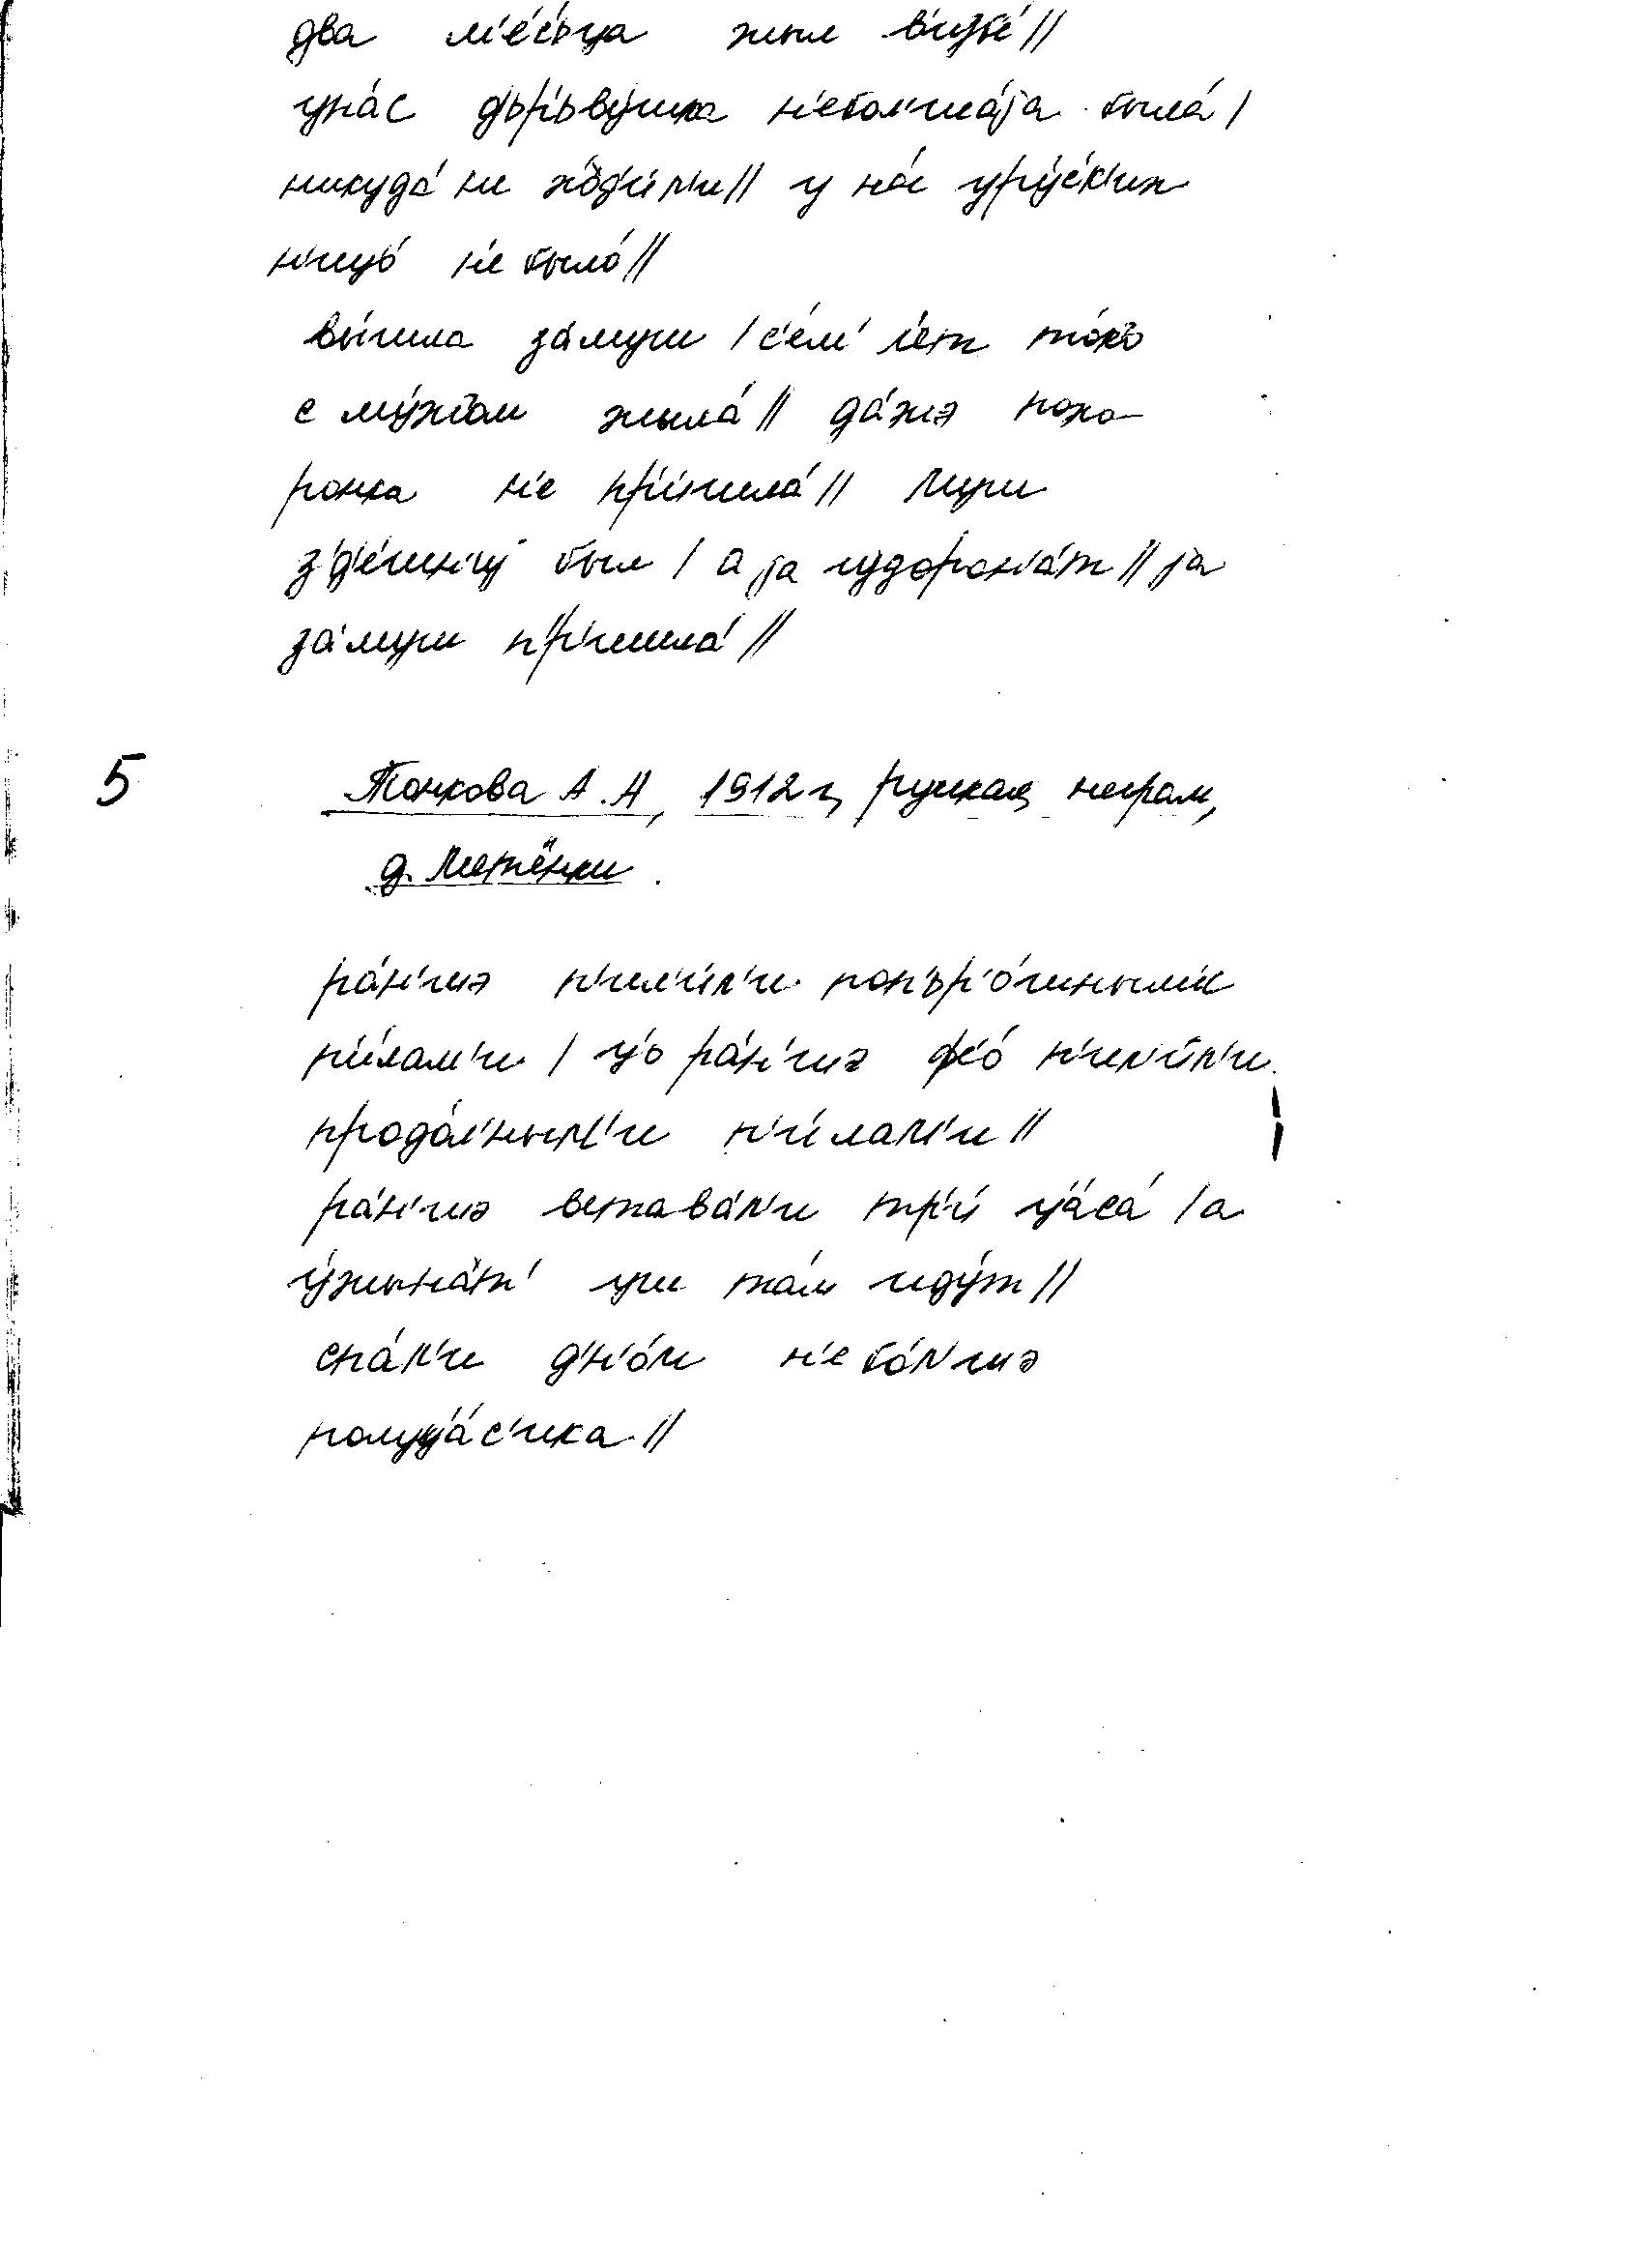 два м'е́с'ьца жыл в'избе́ //
уна́с д'ьр'ьву́шка н'ебол'ша́jа была́ /
никуда́ ни ход'и́л'и // у на́с уру́ск'их
н'ицо́ н'е было́ //
вы́шла за́муш / с'е́м' л'ет то́къ
с му́жом жыла́ // да́жэ похо-
ронка н'е пр'ишла́ // муш
з'д'е́шн'иј был / а jа чудорона́т // jа
за́муш пр'ишла́ //
5 Тонкова А.Н, 1912 г, русская, неграм,
д. Метёнки.
ра́н'шэ п'ил'и́л'и попър'о́шным'и
п'и́лам'и / ц'о ра́н'шэ фс'о́ п'ил'и́л'и
продо́л'ным'и п'и́лам'и //
ра́н'шэ встава́л'и тр'и́ ц'аса́ / а
у́жынат' уш та́м иду́т //
спа́л'и дн'о́м н'е бо́л'шэ
полуц'а́с'ика //